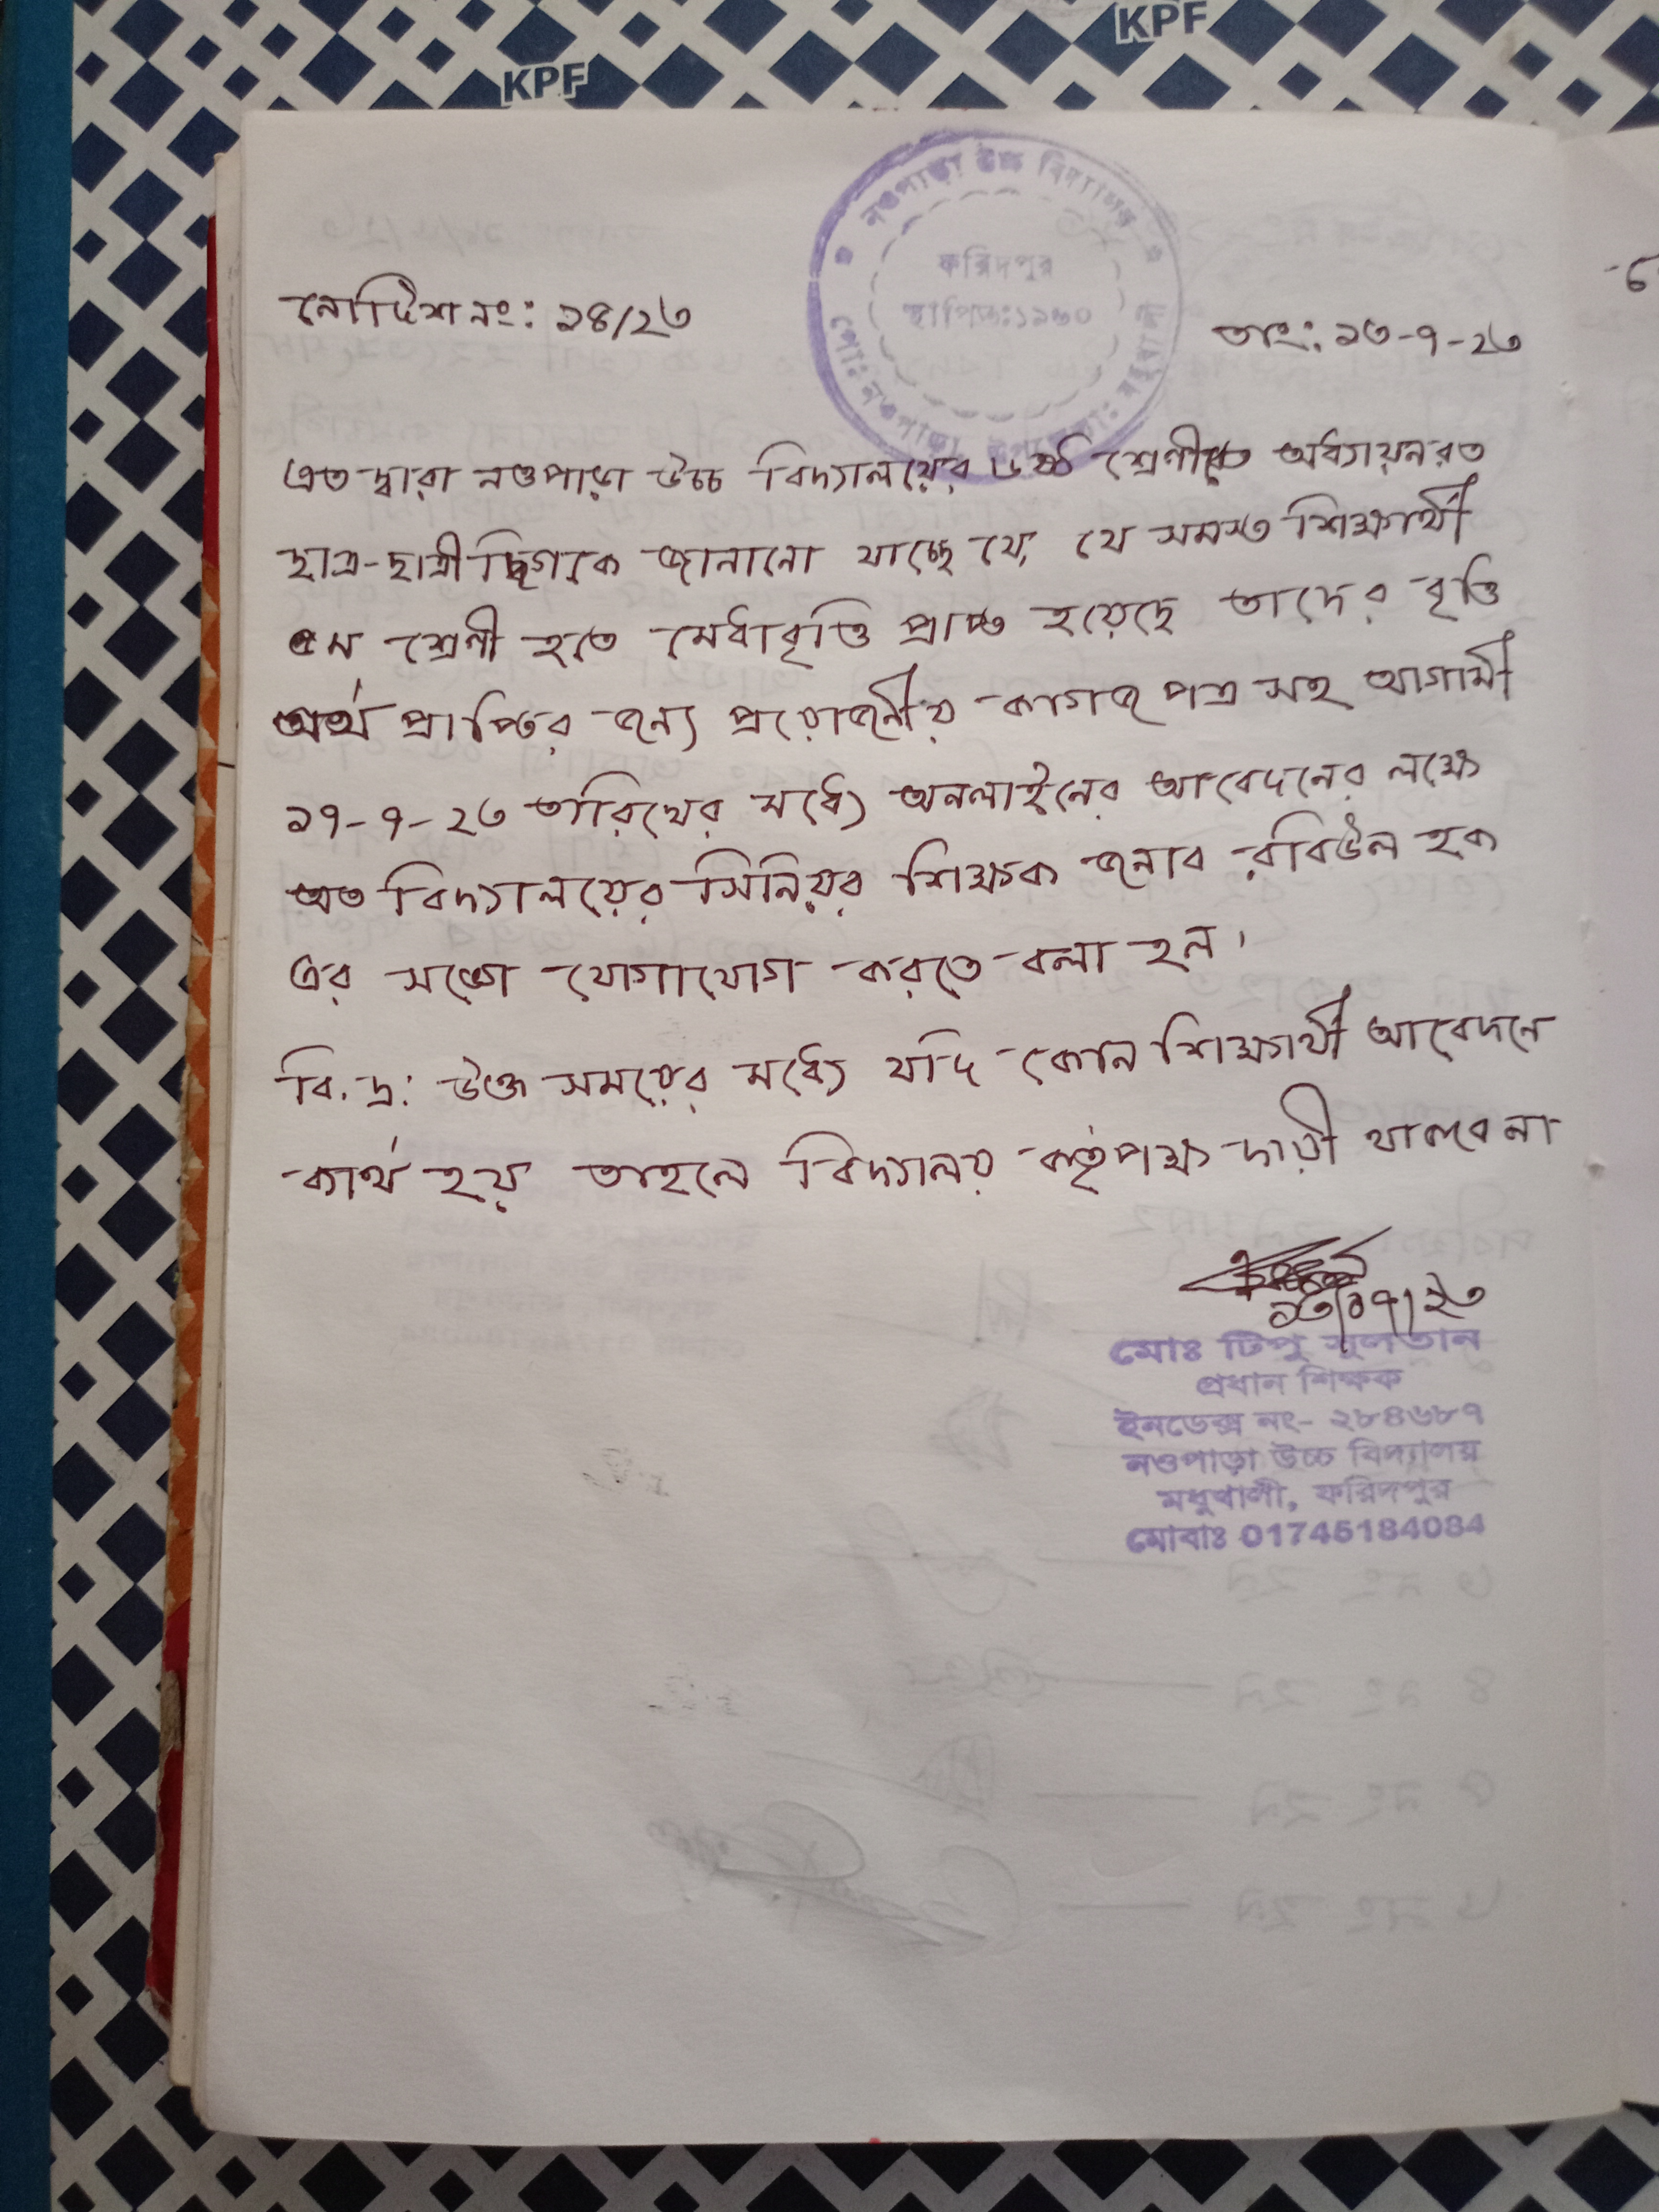 KPF
KPF
নওপাড়া উচ্চ বিদ্যালয়
ফরিদপুর
স্থাপিত:১৯৬০
পো: নওপাড়া, উপজেলা: মধুখালী
নোটিশ নং: ১৪/২৩
তাং: ১৩-৭-২৩
এত দ্বারা নওপাড়া উচ্চ বিদ্যালয়ের ৬ষ্ঠ শ্রেণীতে অধ্যায়নরত
ছাত্র-ছাত্রীদ্বিগকে জানানো যাচ্ছে যে, যে সমস্ত শিক্ষার্থী
৫ম শ্রেণী হতে মেধাবৃত্তি প্রাপ্ত হয়েছে তাদের বৃত্তি
অর্থ প্রাপ্তির জন্য প্রয়োজনীয় কাগজ পত্র সহ আগামী
১৭-৭-২৩ তারিখের মধ্যে অনলাইনের আবেদনের লক্ষ্যে
অত্র বিদ্যালয়ের সিনিয়র শিক্ষক জনাব রবিউল হক
এর সঙ্গে যোগাযোগ করতে বলা হল।
বি. দ্র: উক্ত সময়ের মধ্যে যদি কোন শিক্ষার্থী আবেদনে
ব্যর্থ হয় তাহলে বিদ্যালয় কর্তৃপক্ষ দায়ী থাকবে না
১৩/০৭/২৩
মোঃ টিপু সুলতান
প্রধান শিক্ষক
ইনডেক্স নং- ২৮৪৬৮৭
নওপাড়া উচ্চ বিদ্যালয়
মধুখালী, ফরিদপুর
মোবাঃ 01745184084